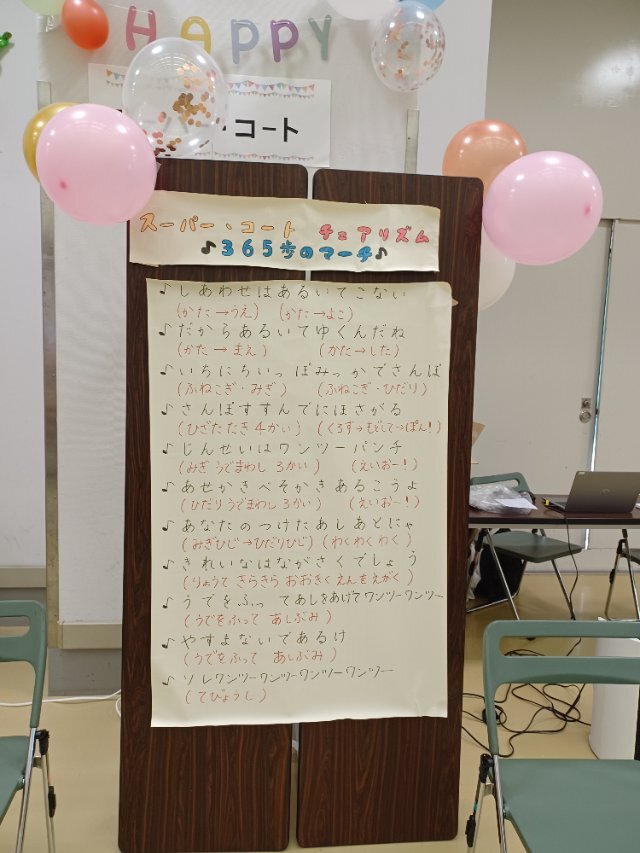 HAPPY
・コート
スーパー・コート チェアリズム
♪365歩のマーチ♪
♪しあわせはあるいてこない
(かた→うえ) (かた→よこ)
♪だからあるいてゆくんだね
(かた→まえ) (かた→した)
♪いちにちいっぽみっかでさんぽ
(ふねこぎ・みぎ) (ふねこぎ・ひだり)
♪さんぽすすんでにほさがる
(ひざたたき4かい) (くろす→もどして→ぽん!)
♪じんせいはワンツーパンチ
(みぎうでまわし3かい) (えいおー!)
♪あせかきべそかきあるこうよ
(ひだりうでまわし3かい) (えいおー!)
♪あなたのつけたあしあとにゃ
(みぎひじ→ひだりひじ) (わくわくわく)
♪きれいなはながさくでしょう
(りょうてきらきらおおきくえんをえがく)
♪うでをふってあしをあげてワンツーワンツー
(うでをふって あしぶみ)
♪やすまないであるけ
(うでをふって あしぶみ)
♪ソレワンツーワンツーワンツーワンツー
(てびょうし)